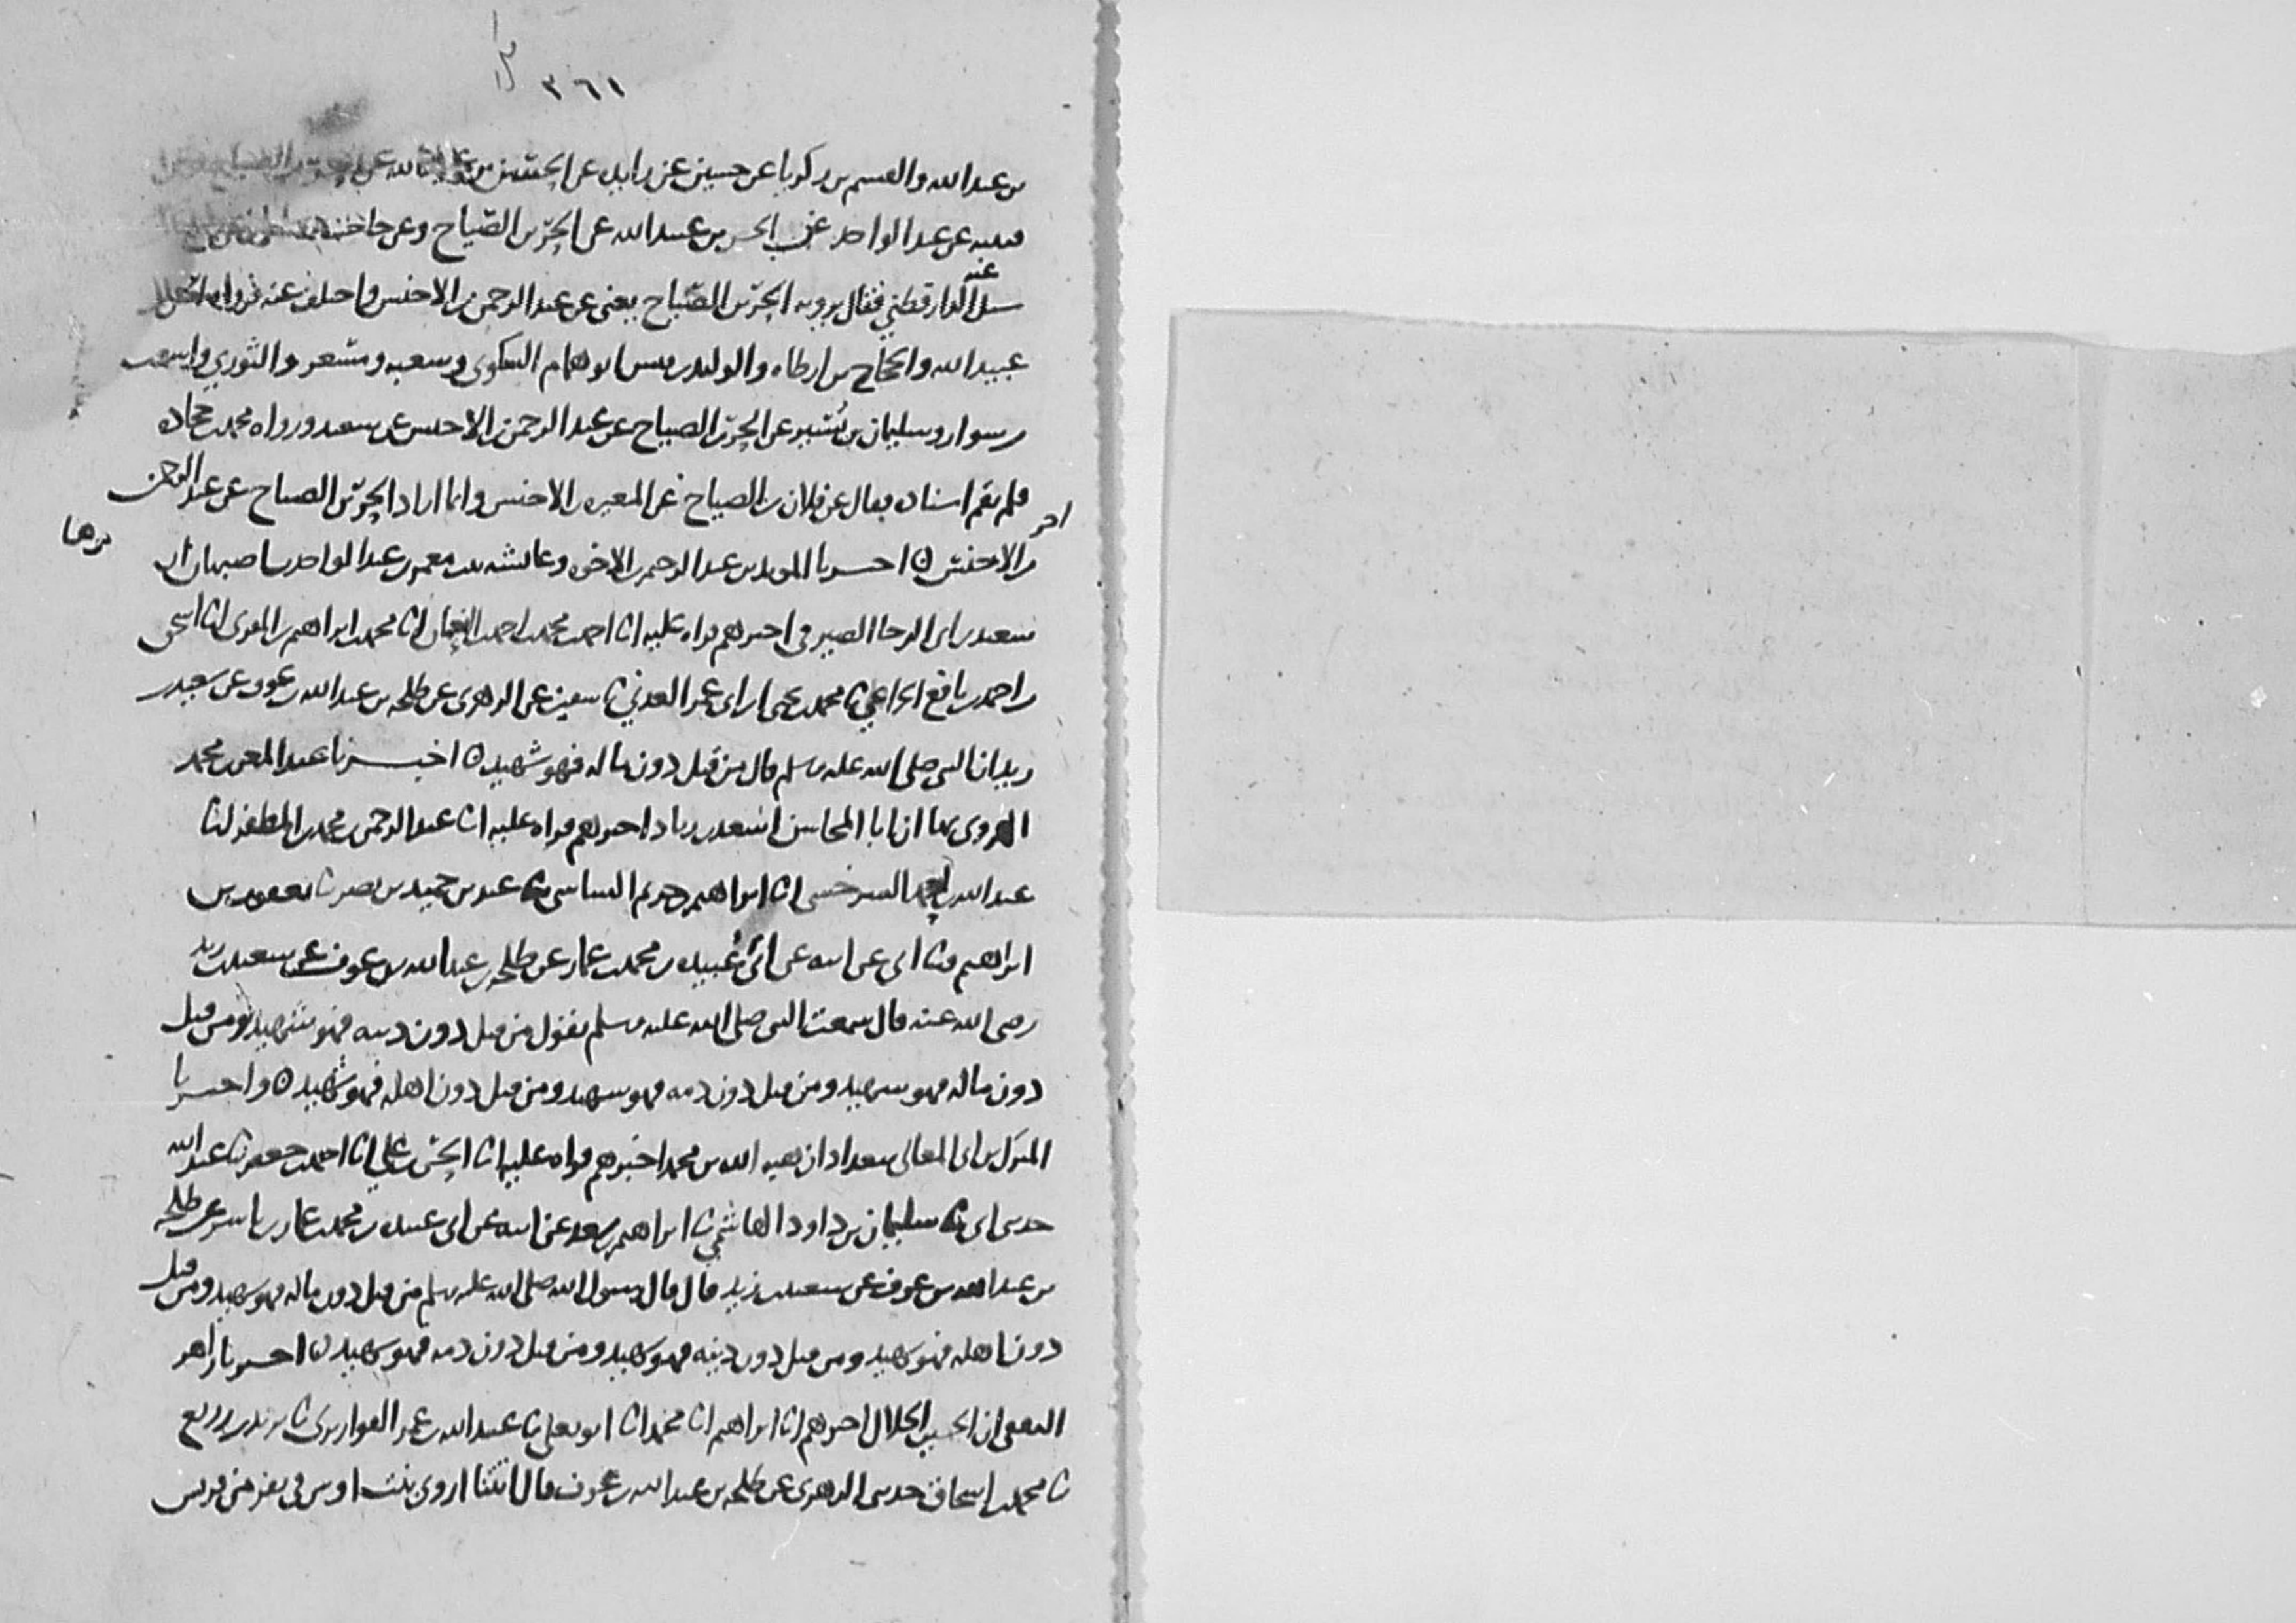 ٣٦١
بن عبد الله والقسم بن زكريا عن حسين عن زايده عن الحسن بن عبيد الله عن الحر بن الصياح
عن عبد الواحد عن الحسن بن عبيد الله عن الحر بن الصياح وعن حاجب
سئل عنه الدارقطني فقال يرويه الحر بن الصياح يعني عن عبد الرحمن بن الاخنس واختلف عنه فرواه الحسن بن
عبيد الله والحجاج بن ارطاه والوليد بن قيس ابو همام السكوني وشعبه ومسعر والثوري واشعث
بن سوار وسليمان بن بشير عن الحر بن الصياح عن عبد الرحمن بن الاخنس عن سعيد ورواه محمد بن جحاده
فلم يقم اسناده فقال عن فلان بن الصياح عن المغيره بن الاخنس وانما اراد الحر بن الصياح عن عبد الرحمن
بن الاخنس ٥ اخبرنا المويد بن عبد الرحيم بن الاخوه وعائشه بنت معمر بن عبد الواحد باصبهان ان
اخر
سعيد بن ابي الرجا الصيرفي اخبرهم قراه عليه انا احمد بن محمد بن احمد بن النعمان انا محمد بن ابراهيم بن المقري انا اسحق
بن احمد بن نافع الخزاعي ثنا محمد بن يحيى بن ابي عمر العدني ثنا سفين عن الزهري عن طلحه بن عبد الله بن عوف عن سعيد بن
زيد ان النبي صلى الله عليه وسلم قال من قتل دون ماله فهو شهيد ٥ اخبرنا عبد المعز بن محمد
الهروي بها ان ابا المحاسن اسعد بن زياد اخبرهم قراه عليه انا عبد الرحمن بن محمد بن المظفر انا
عبد الله بن احمد السرخسي انا ابراهيم بن خزيم الشاشي ثنا عبد بن حميد بن نصر ثنا يعقوب بن
ابراهيم ثنا ابي عن ابيه عن ابي عبيده بن محمد بن عمار عن طلحه بن عبد الله بن عوف عن سعيد بن زيد
رضي الله عنه قال سمعت النبي صلى الله عليه وسلم يقول من قتل دون دينه فهو شهيد ومن قتل
دون ماله فهو شهيد ومن قتل دون دمه فهو شهيد ومن قتل دون اهله فهو شهيد ٥ واخبرنا
المبارك بن ابي المعالي ببغداد ان هبه الله بن محمد اخبرهم قراه عليه انا الحسن بن علي انا احمد بن جعفر ثنا عبد الله
حدثني ابي ثنا سليمان بن داود الهاشمي ثنا ابراهيم بن سعد عن ابيه عن ابي عبيده بن محمد بن عمار بن ياسر عن طلحه
بن عبد الله بن عوف عن سعيد بن زيد قال قال رسول الله صلى الله عليه وسلم من قتل دون ماله فهو شهيد ومن قتل
دون اهله فهو شهيد ومن قتل دون دينه فهو شهيد ومن قتل دون دمه فهو شهيد ٥ اخبرنا زاهر
الثقفي ان الحسين الخلال اخبرهم انا ابراهيم انا محمد انا ابو يعلى ثنا عبيد الله بن عمر القواريري ثنا يزيد بن زريع
ثنا محمد بن اسحاق حدثني الزهري عن طلحه بن عبد الله بن عوف قال اتتنا اروى بنت اويس في نفر من قريش